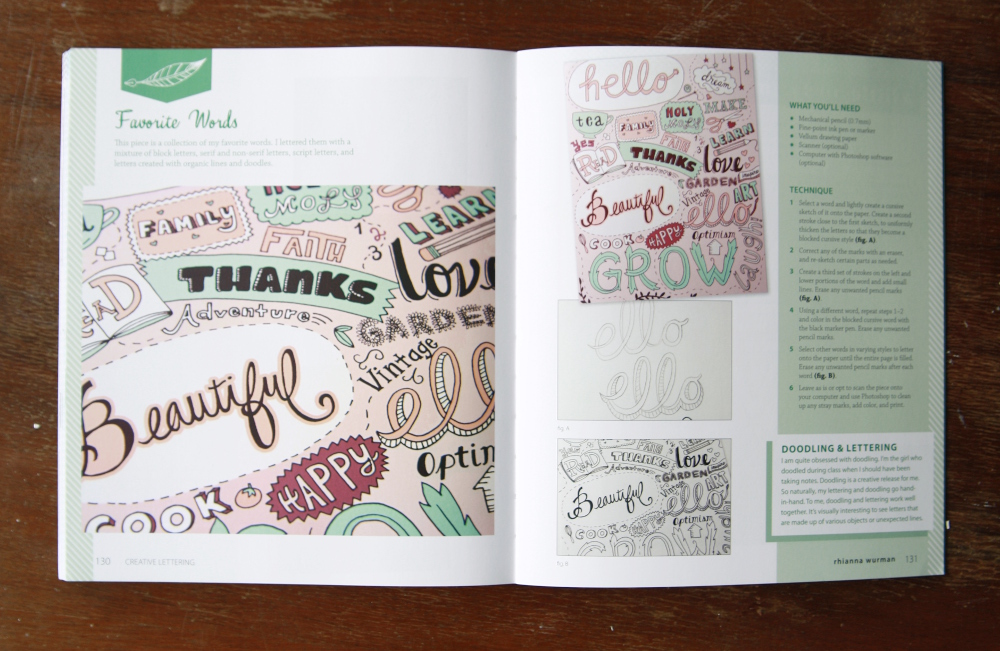 Favorite Words
This piece is a collection of my favorite words. I lettered them with a
mixture of block letters, serif and non-serif letters, script letters, and
letters created with organic lines and doodles.
HOLY
MOLY
FAMILY
LEARN
FAITH
1
2
3
THANKS
love
READ
Adventure
GARDEN
Vintage
Beautiful
ello
HAPPY
Optim
COOK
130 CREATIVE LETTERING
hello
dream
MAKE
tea
FAMILY
HOLY
MOLY
LEARN
yes
READ
FAITH
THANKS
love
GARDEN
Vintage
ART
Beautiful
ello
Optimism
COOK
HAPPY
GROW
ello
ello
fig. A
READ
THANKS
love
Adventure
GARDEN
Vintage
ART
Beautiful
ello
COOK
HAPPY
Optimism
GROW
fig. B
WHAT YOU'LL NEED
Mechanical pencil (0.7mm)
Fine-point ink pen or marker
Vellum drawing paper
Scanner (optional)
Computer with Photoshop software
(optional)
TECHNIQUE
1 Select a word and lightly create a cursive
sketch of it onto the paper. Create a second
stroke close to the first sketch, to uniformly
thicken the letters so that they become a
blocked cursive style (fig. A)
2 Correct any of the marks with an eraser,
and re-sketch certain parts as needed.
3 Create a third set of strokes on the left and
lower portions of the word and add small
lines. Erase any unwanted pencil marks
(fig. A)
4 Using a different word, repeat steps 1–2
and color in the blocked cursive word with
the black marker pen. Erase any unwanted
pencil marks.
5 Select other words in varying styles to letter
onto the paper until the entire page is filled.
Erase any unwanted pencil marks after each
word (fig. B)
6 Leave as is or opt to scan the piece onto
your computer and use Photoshop to clean
up any stray marks, add color, and print.
DOODLING & LETTERING
I am quite obsessed with doodling. I'm the girl who
doodled during class when I should have been
taking notes. Doodling is a creative release for me.
So naturally, my lettering and doodling go hand-
in-hand. To me, doodling and lettering work well
together. It's visually interesting to see letters that
are made up of various objects or unexpected lines.
rhianna wurman 131